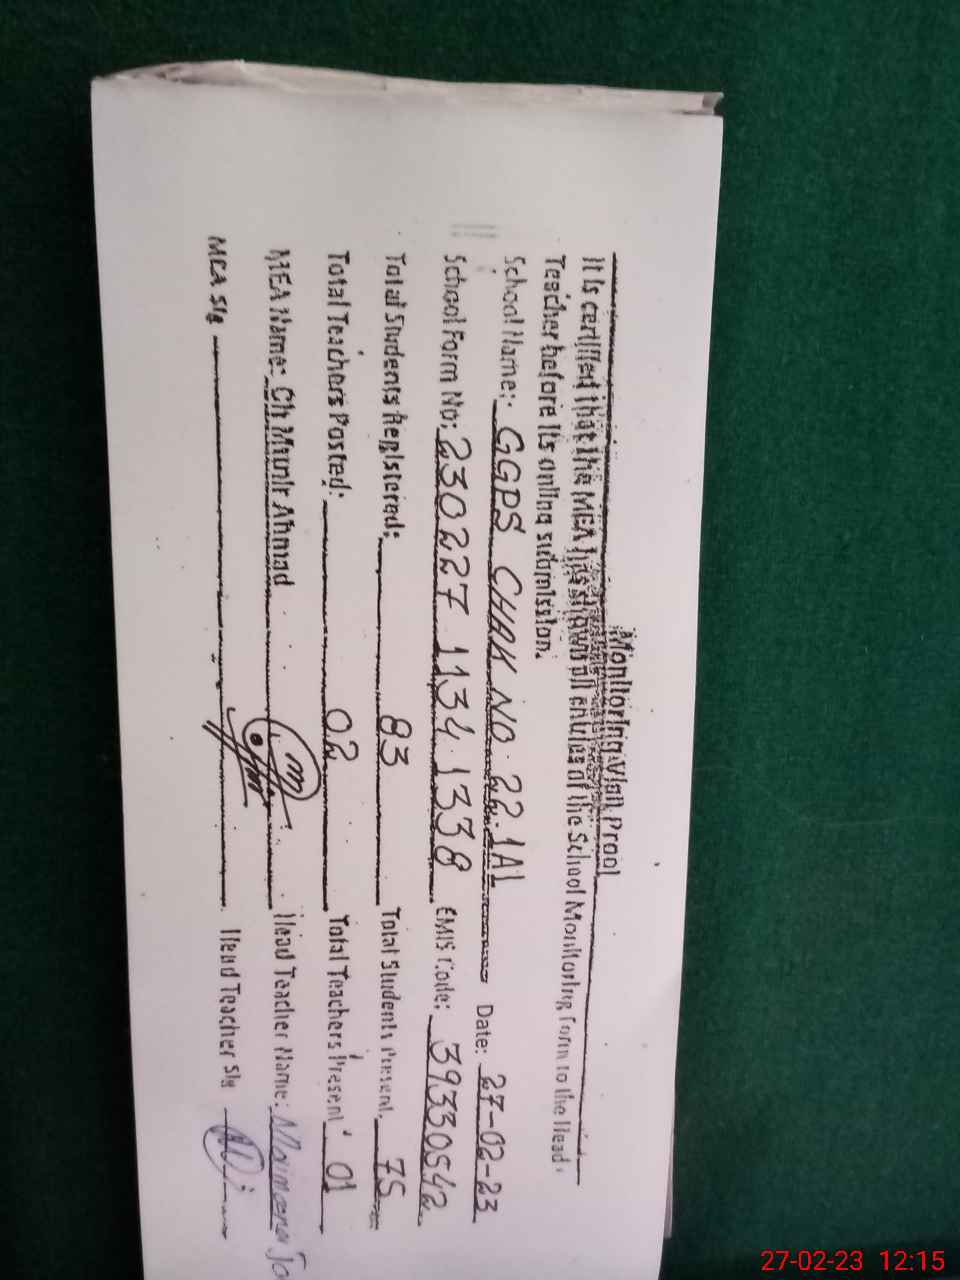 Monitoring Visit Proof
It is certified that the MEA has shown all entries of the School Monitoring Form to the Head
Teacher before its online submission.
School Name: GGPS CHAK NO. 22.1AL Date: 27-02-23
School Form No: 230227 1134 1338 EMIS Code: 39330542
Total Students Registered: 83 Total Students Present. 75
Total Teachers Posted: 02 Total Teachers Present 01
MEA Name: Ch Munir Ahmad Head Teacher Name:
MEA Sig Head Teacher Sig
27-02-23 12:15